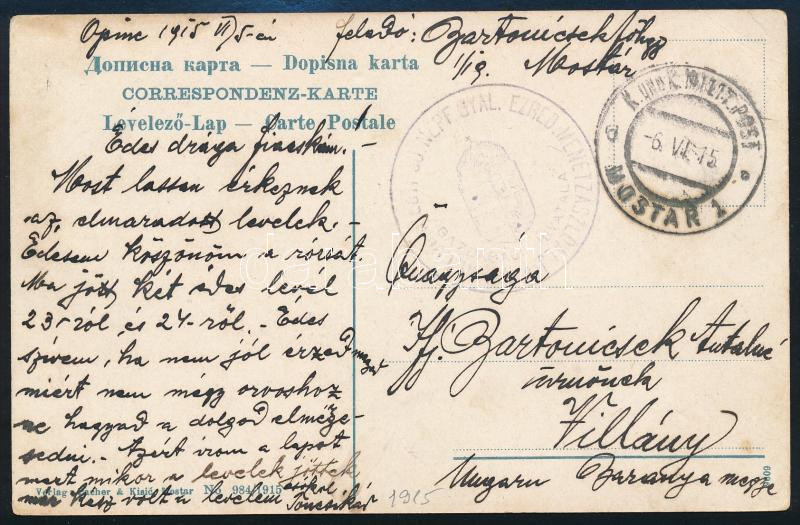 Opine 1915 VI/5-én feladó: Bartonicsek főhgy
1/19. Mostár
Дописна карта — Dopisna karta
CORRESPONDENZ-KARTE
Levelező-Lap — Carte Postale
K. UND K. MILIT. POST
-6. VI. 15
MOSTAR 1
EZRED MENETZÁSZLÓALJ
Édes drága fiacskám.-
Most lassan érkeznek
az elmaradott levelek.-
Édesem köszönöm a rózsát.
Ma jött két édes level
23-ról és 24-ről.- Édes
szívem, ha nem jól érzed magad
miért nem mégy orvoshoz
ne hagyad a dolgod elmége-
sedni.- Azért irom a lapot
mert mikor a levelek jöttek
már kész volt a levelem csókol
Toncsikád
Őnagysága
Ifj. Bartonicsek Antalné
úrnőnek
Villány
Ungarn Baranya megye
Verlag Pacher & Kisić Mostar No 984/1915
1915
darabanth